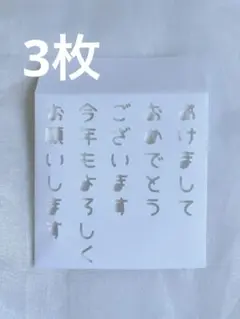 3枚
あけまして
おめでとう
ございます
今年もよろしく
お願いします